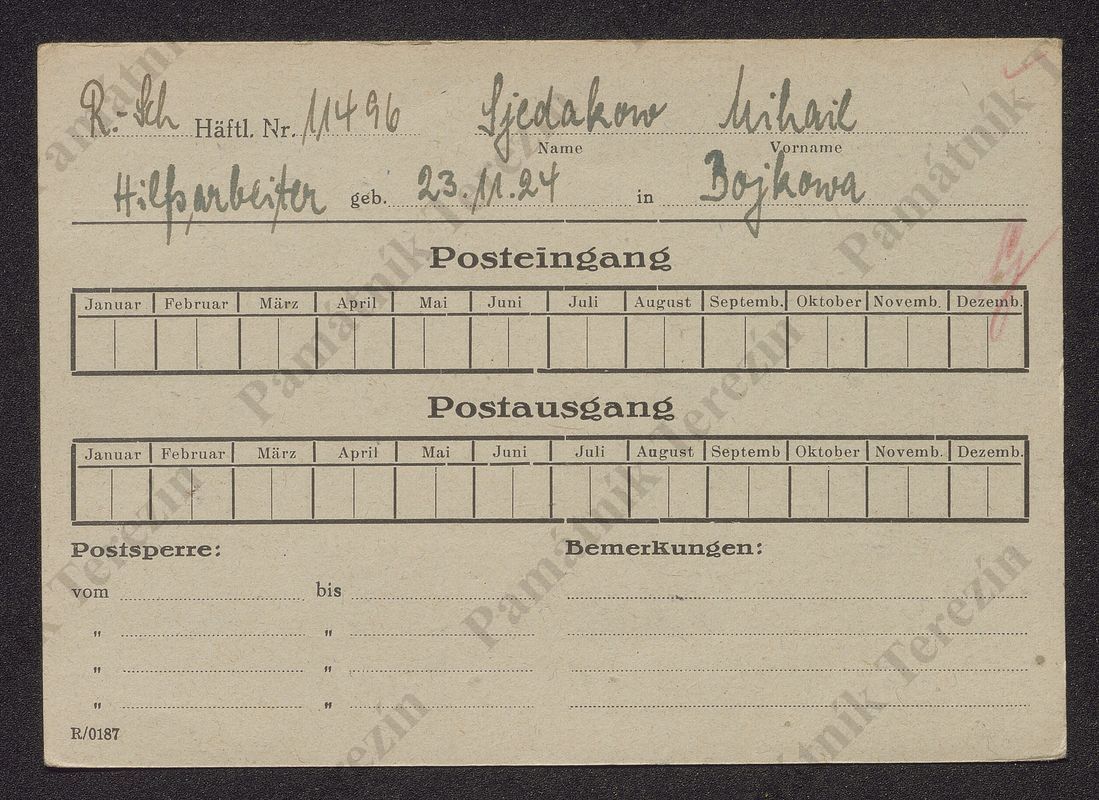 R.-Sch Häftl. Nr. 11496 Sjedakow Mihail
Name Vorname
Hilfsarbeiter geb. 23.11.24 in Bojkowa
Posteingang
Januar Februar März April Mai Juni Juli August Septemb. Oktober Novemb. Dezemb.
Postausgang
Januar Februar März April Mai Juni Juli August Septemb Oktober Novemb. Dezemb.
Postsperre: Bemerkungen:
vom bis
" "
" "
" "
R/0187
Památník Terezín